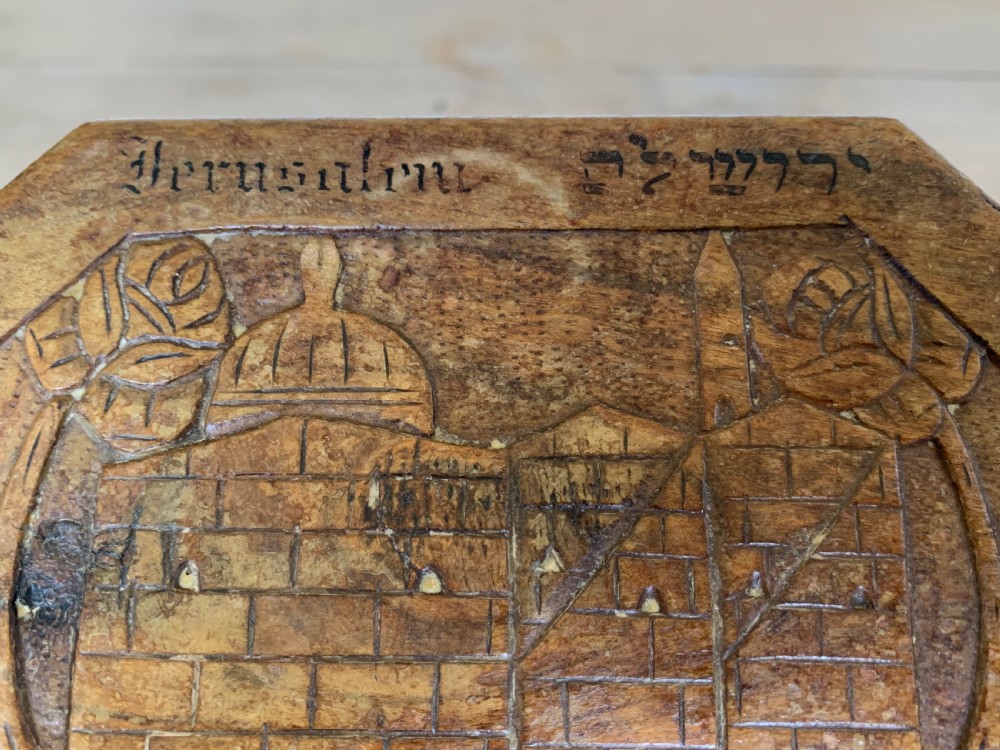 Jerusalem ירושלם